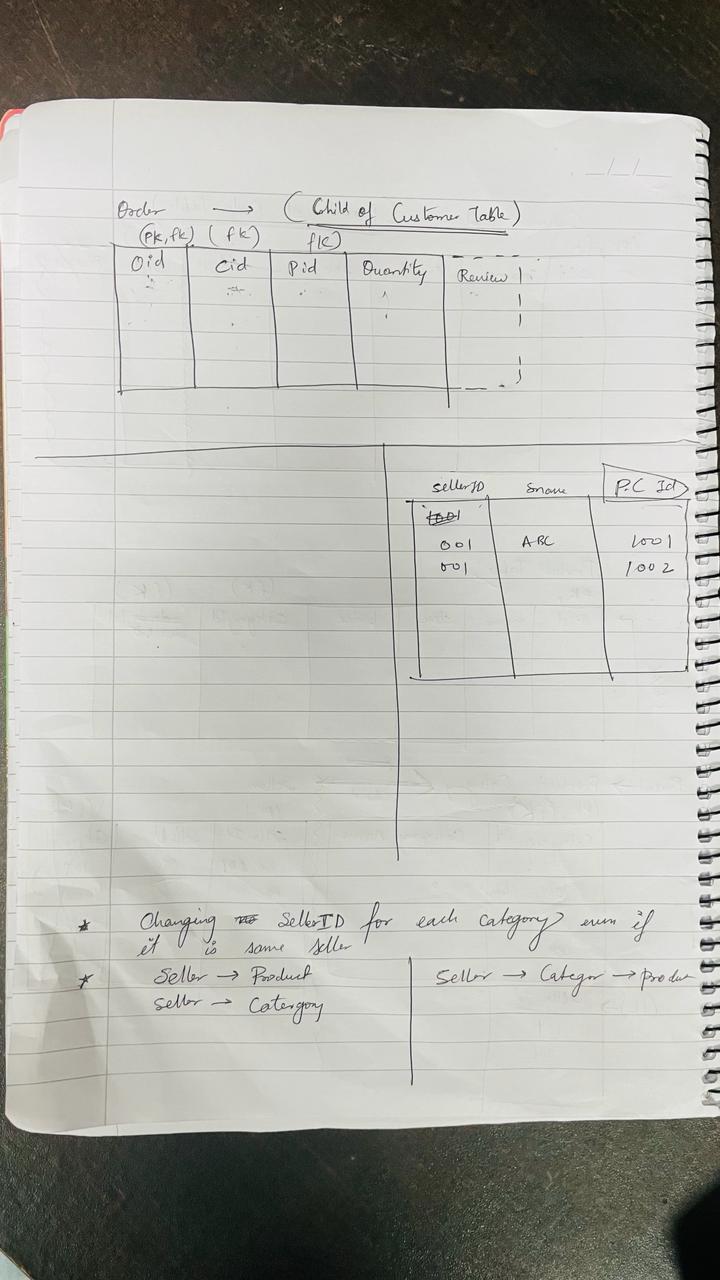 Order → (Child of Customer Table)
(pk, fk) (fk) fk)
Oid Cid Pid Quantity Review
SellerID Sname P.C Id
001 ABC 1001
001 1002
* Changing SellerID for each Category even if
it is same seller
* Seller → Product
Seller → Catergory
Seller → Categor → Produ